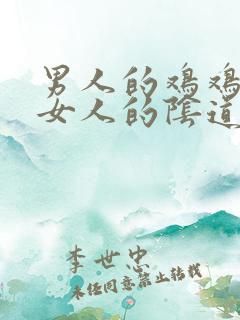 男人的鸡鸡
女人的陰道
李世忠
未经同意禁止转载